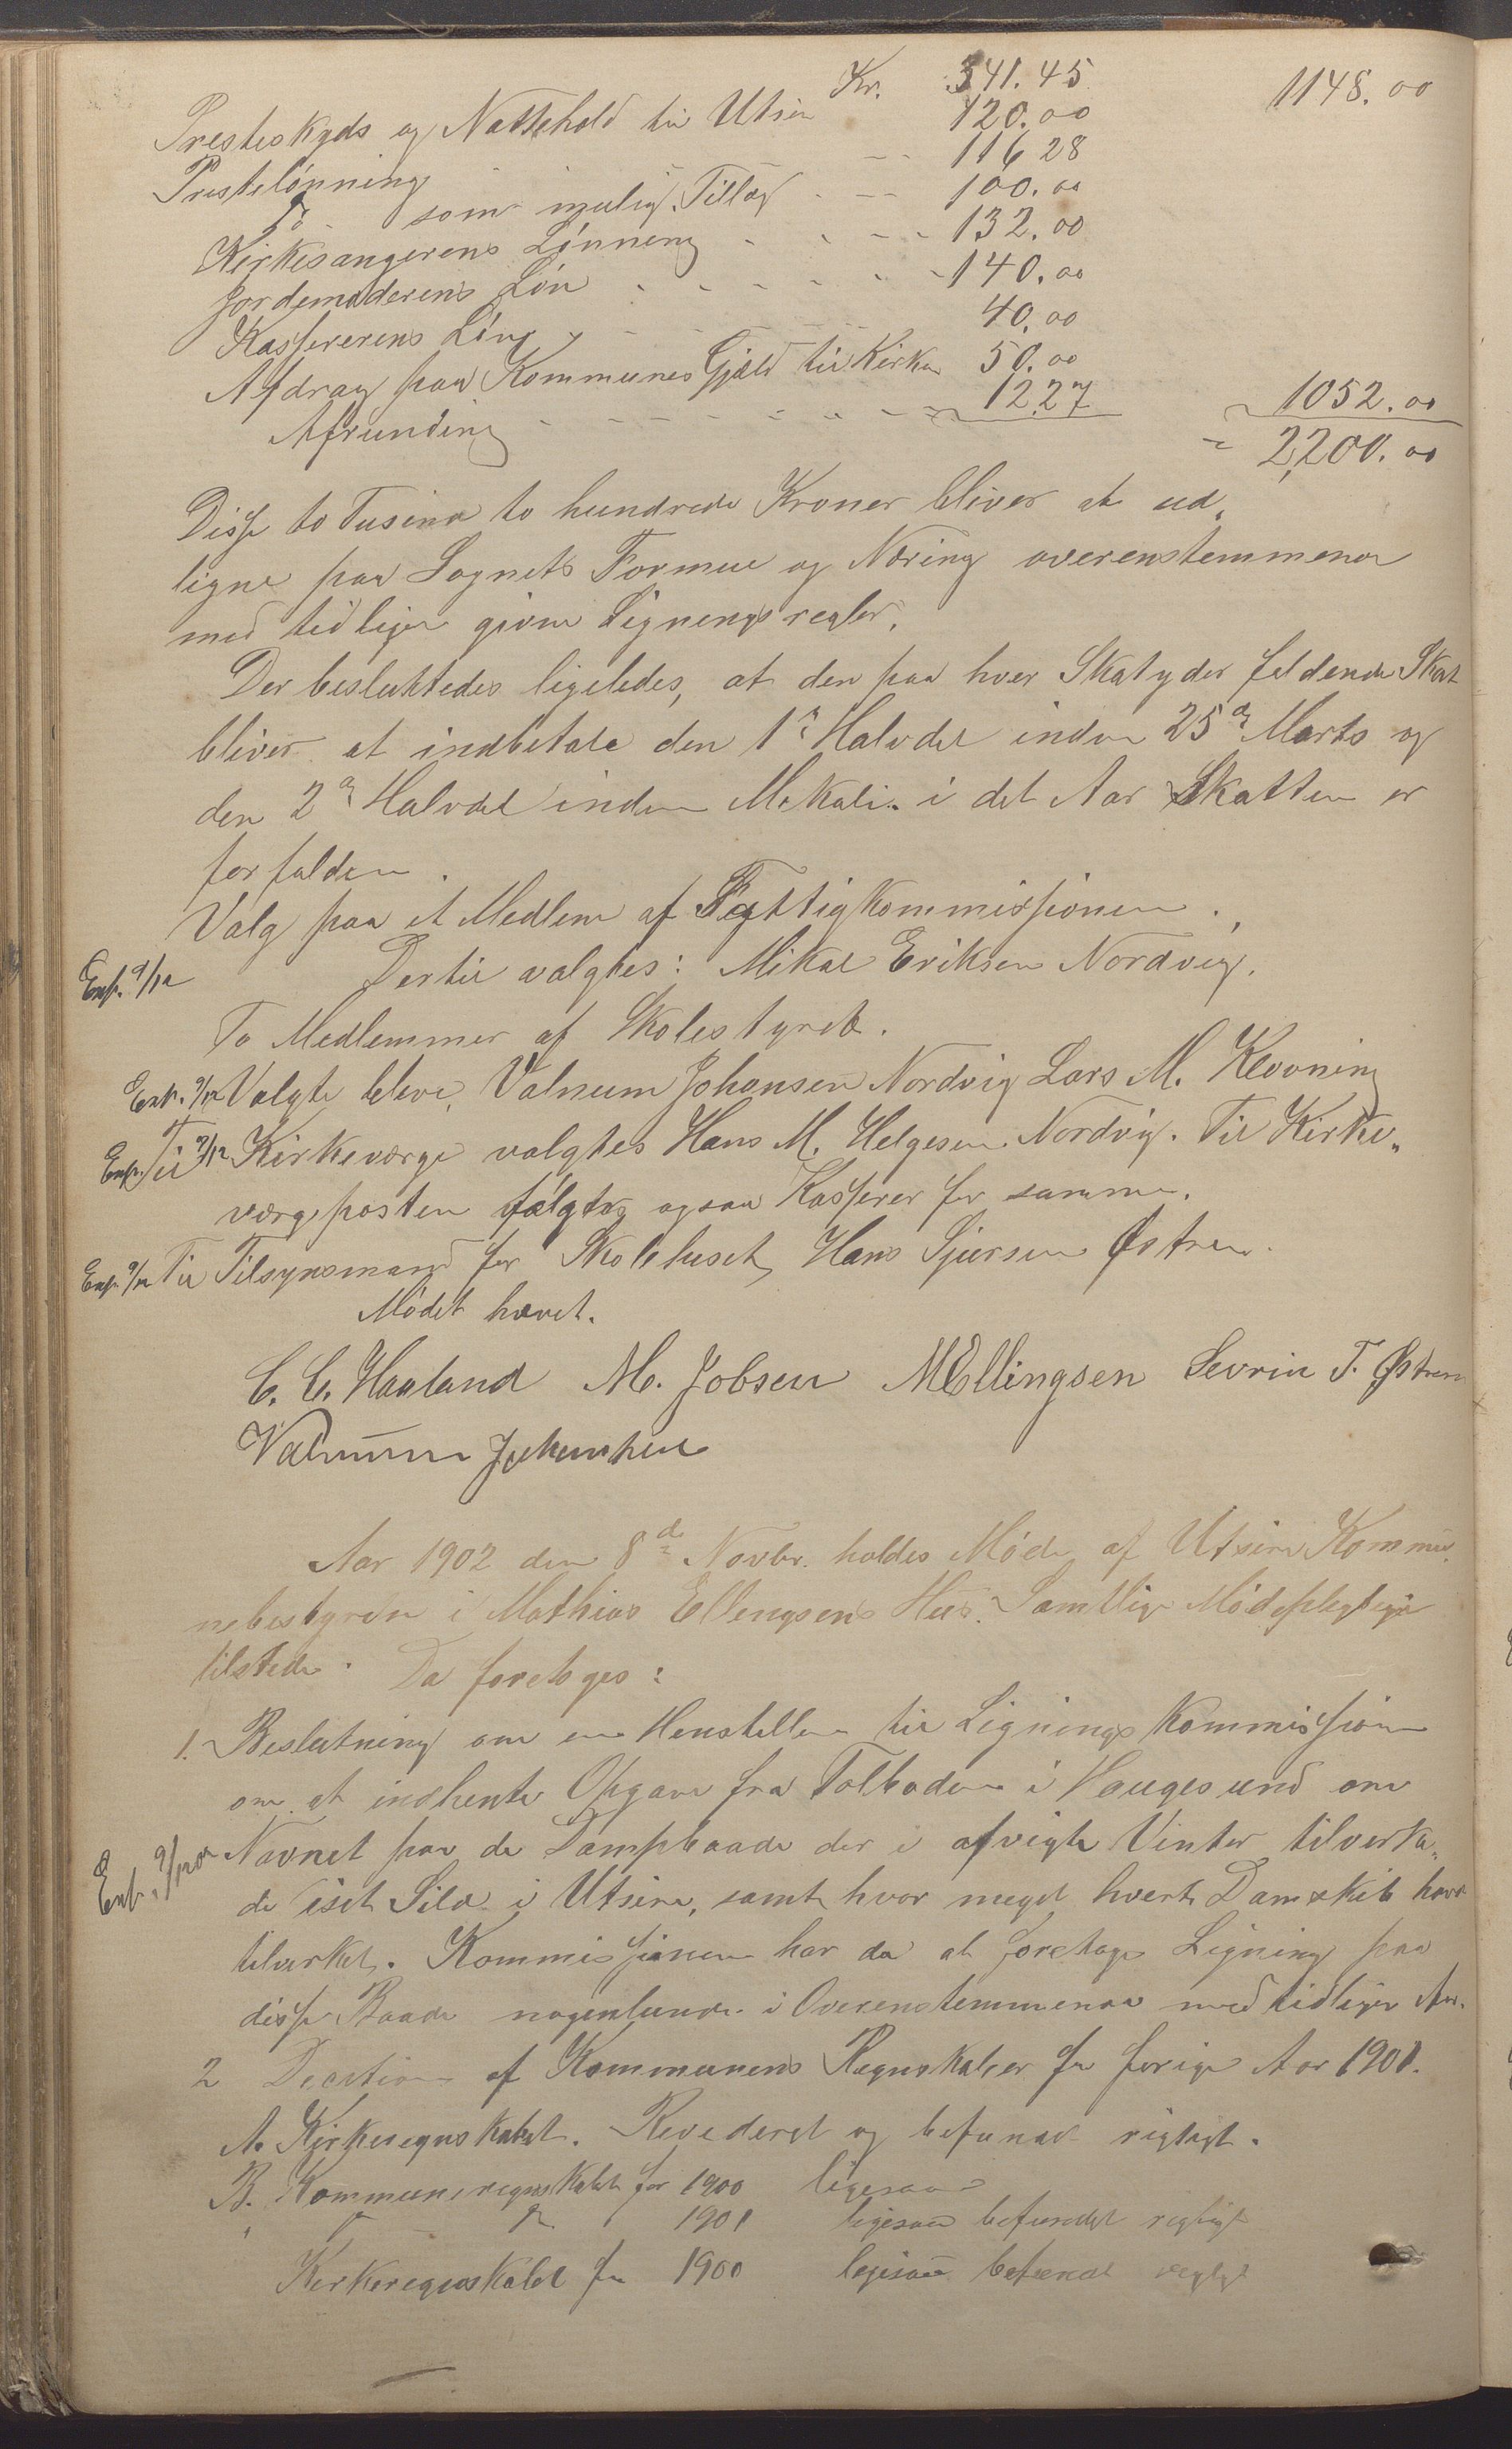 Kr. 341.45 1148.00
Presteskyds og Nattehold til Utsire 120.00
Prestelønning 116 28
Do som mulig Tillæg 100.00
Kirkesangerens Lønning 132.00
Jordemoderens Løn 140.00
Kassererens Løn 40.00
Afdrag paa Kommunes Gjæld til Kirken 50.00
Afrunding 12.27 1052.00
2,200.00
Disse to Tusind to hundrede Kroner bliver at ud„
ligne paa Sognets Formue og Næring overenstemmende
med tidligere givne Ligningsregler.
Der besluttedes ligeledes, at den paa hver Skatyder faldende Skat
bliver at indbetale den 1ste Halvdel inden 25de Marts og
den 2den Halvdel inden Mikali i det Aar Skatten er
forfalden.
Valg paa et Medlem af Fattigkommissionen.
Exp. 9/12 Dertil valgtes: Mikal Eriksen Nordvig.
To Medlemmer af Skolestyret.
Exp. 9/12 Valgte bleve, Valnum Johansen Nordvig Lars M. Klovning
Exp. 9/12 Til Kirkeværge valgtes Hans M. Helgesen Nordvig. Til Kirke„
værgeposten følgtes ogsaa Kasserer for samme.
Exp. 9/12 Til Tilsynsmand for Skolehuset, Hans Sjursen Østrem.
Mødet hævet.
C. C. Haaland M. Jobsen M Ellingsen Sevrin T. Østrem
Valnum Johansen
Aar 1902 den 8de Novbr. holdes Møde af Utsire Kommu„
nebestyrelse i Mathias Ellingsens Hus. Samtlige Mødepligtige
tilstede. Da foretoges:
1. Beslutning om en Henstillen til Ligningskommissionen
om at indhente Opgave fra Tolboden i Haugesund om
Exp. 9/12 02 Navnet paa de Dampbaade der i afvigte Vinter tilvirke„
de iset Sild i Utsire, samt hvor meget hvert Damskib havde
tilvirket. Kommissionen har da at foretage Ligning paa
disse Baade nogenlunde i Overenstemmende med tidligere Aar.
2 Decition af Kommunens Regnskaber for forige Aar 1901.
A. Kirkeregnskabet. Revideret og befundet rigtigt.
B. Kommuneregnskabet for 1900 ligesaa
" " 1901 ligesaa befundet rigtigt
Kirkeregnskabet for 1900 ligesaa befundet rigtigt